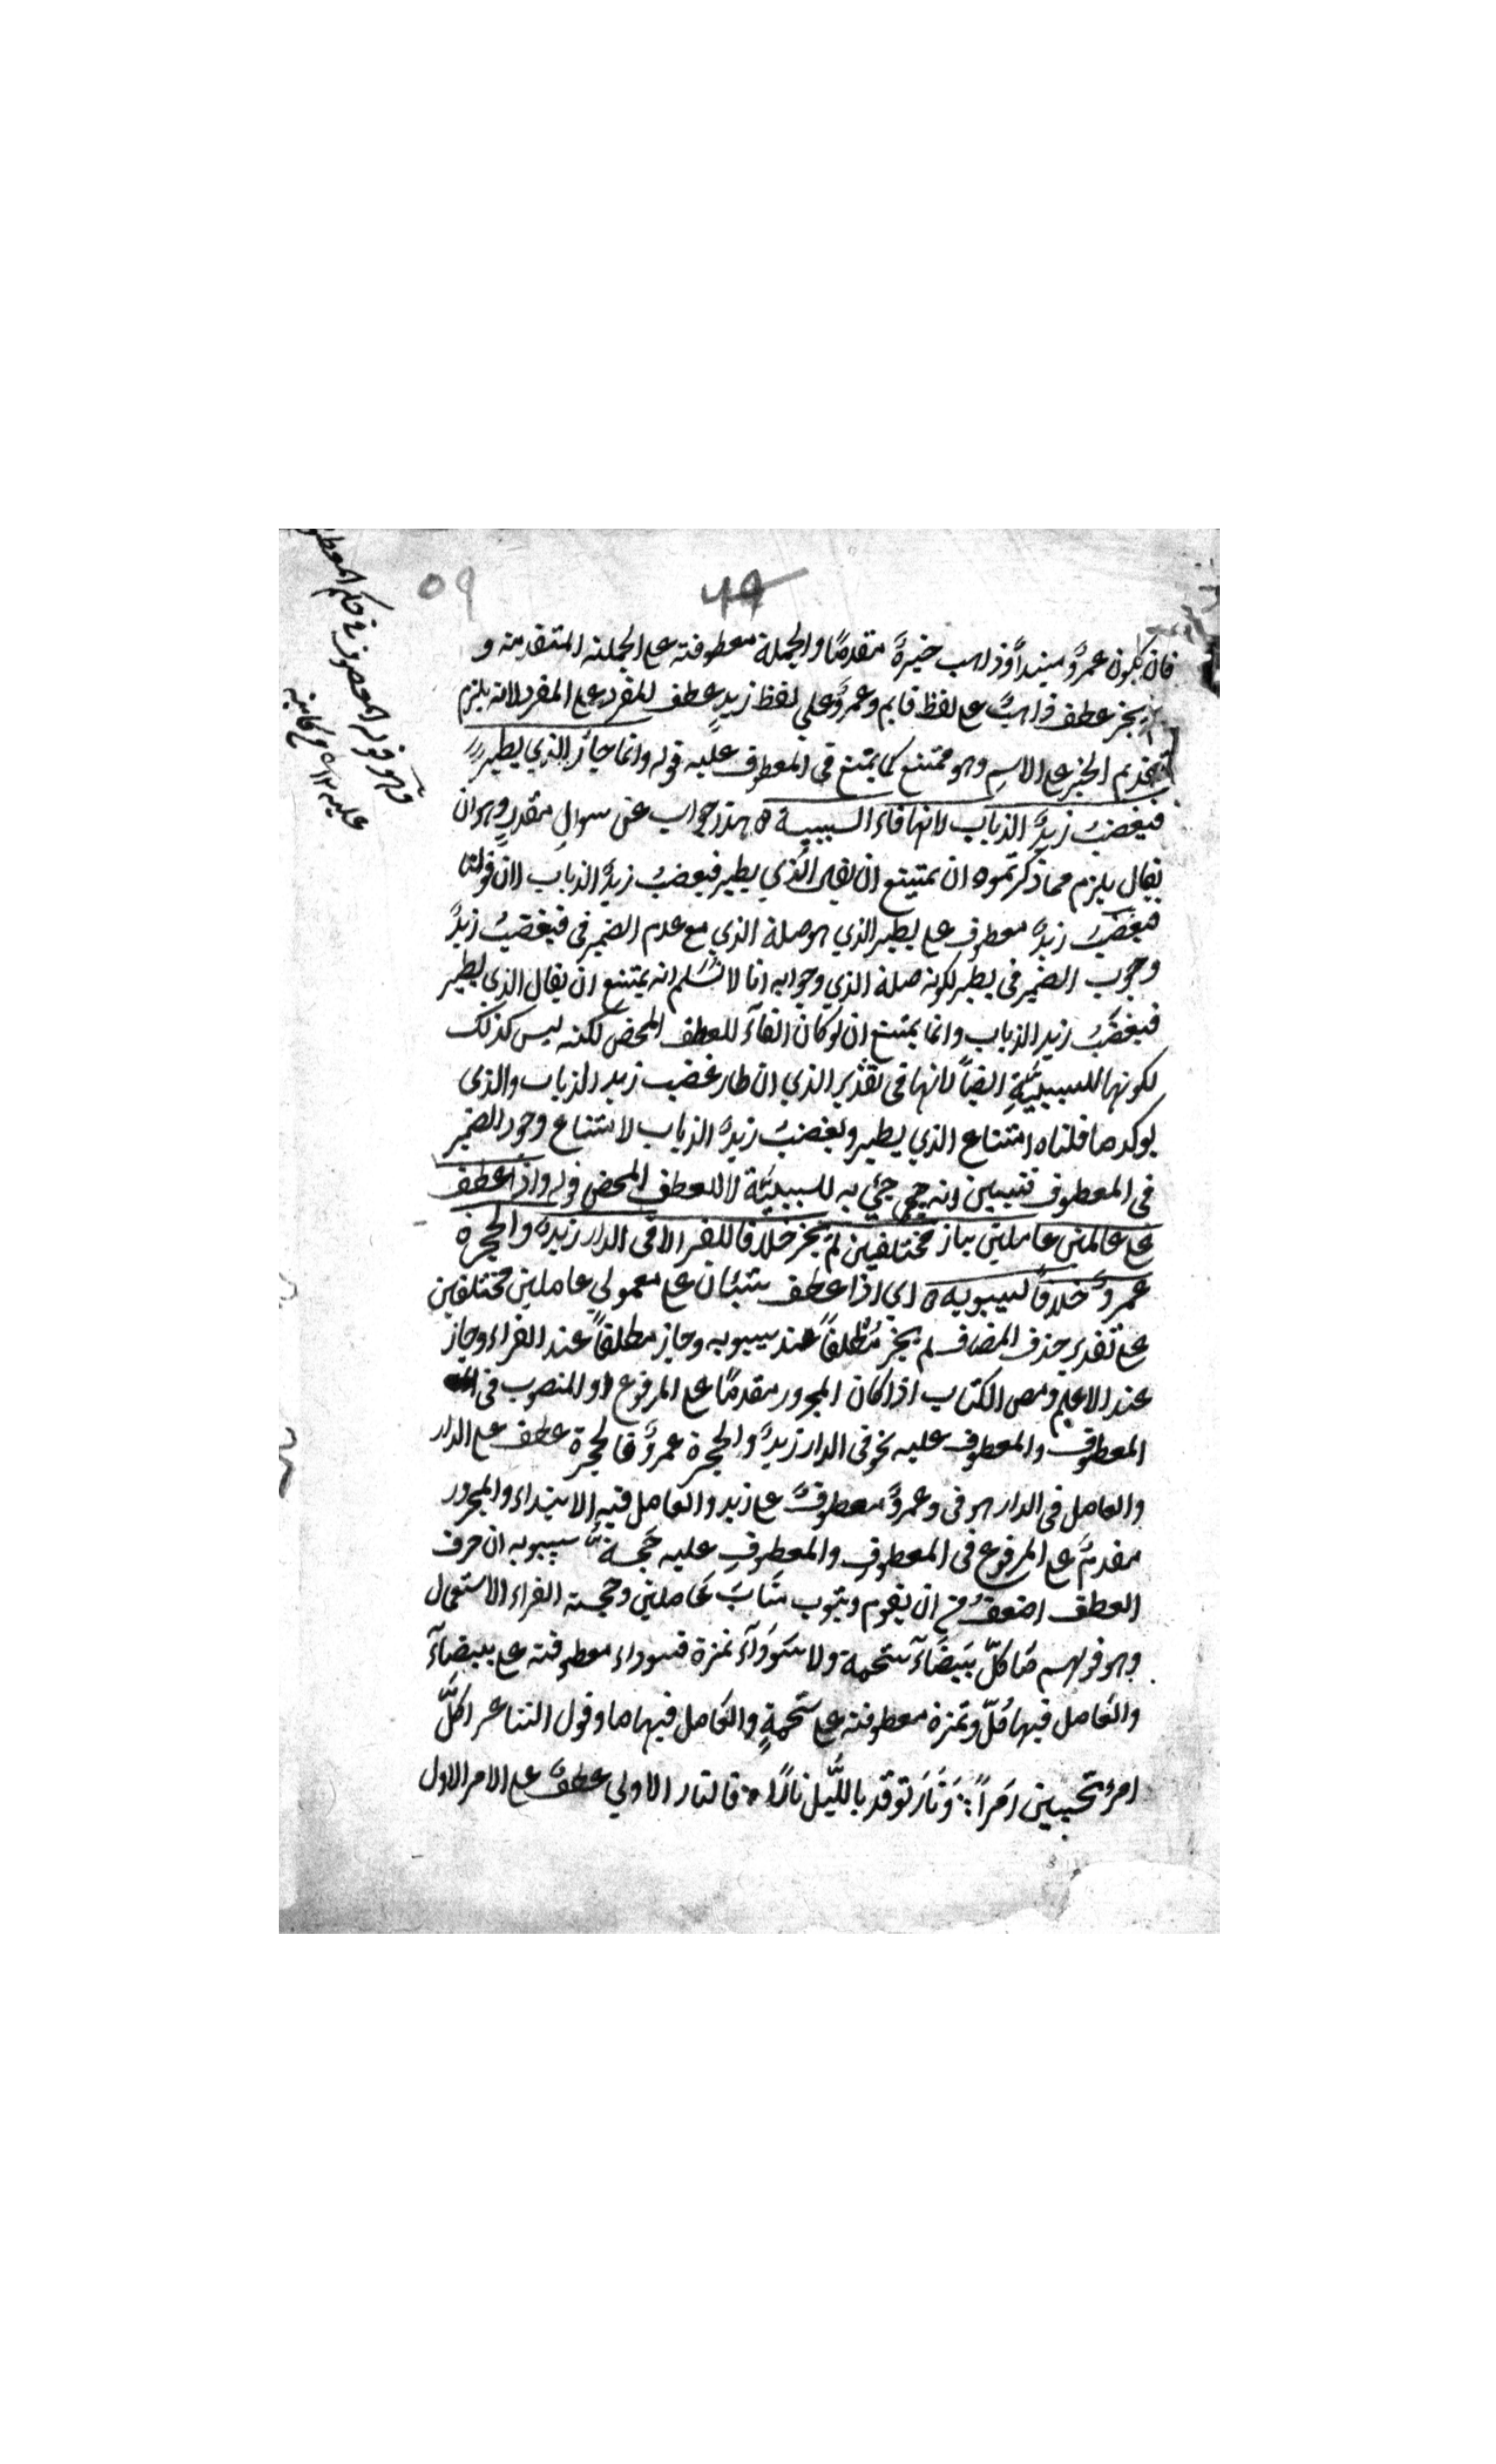 ٥٩
٤٩
فان يكون عمروٌ مبتدأً وذاهب خبرهَ متقدمًا والجملة معطوفته على الجملته المتقدمته و
لم يجز عطف ذاهبٌ على لفظ قايم وعمروٌ على لفظ زيدٍ عطف للمفرد على المفرد لانه يلزم
تقديم الخبر على الاسمِ وهو ممتنع كما يمتنع فى المعطوف عليه قوله وانما جاز الذي يطير
فيغضبُ زيدٌ الذباب لانها فاء السببية ه هذا جواب عن سوالٍ مقدرٍ وهو ان
يقال يلزم مما ذكرتموه ان يمتنع ان يقال الذي يطير فيغضبُ زيدٌ الذباب لان قولنا
فيغضبُ زيدٌ معطوف على يطير الذي هو صلة الذي مع عدم الضمير فى فيغضبُ زيدٌ
وجوب الضمير فى يطير لكونه صلة الذي وجوابه انا لا نُسَلم انه يمتنع ان يقال الذي يطير
فيغضبُ زيد الذباب وانما يمتنع ان لو كان الفآء للعطف المحض لكنه ليس كذلك
لكونها للسببيّةِ ايضاً لانها فى تقدير الذي ان طار غضب زيد الذباب والذى
يوكد ما قلناه امتناع الذي يطير ويغضبُ زيدٌ الذباب لامتناع وجود الضمير
فى المعطوف فتبين انه جيئ به للسببيّة لا للعطف المحض قوله واذا عطف
على عاملين مختلفين لم يجز خلافا للفرا الا فى الدار زيدٌ والحجرة
عمروٌ خلافاً لسيبويه ه اي اذا عطف شيئان على معمولي عاملين مختلفين
على تقدير حذف المضاف لم يجز مُطْلقاً عند سيبويه وجاز مطلقاً عند الفراء وجاز
عند الاعلم ومص الكتاب اذا كان المجرور مقدمًا على المرفوع او المنصوب فى
المعطوف والمعطوف عليه نحو فى الدار زيدٌ والحجرة عمروٌ فالحجرة عطف على الدار
والعامل فى الدار هو فى وعمروٌ معطوفٌ على زيد والعامل فيه الابتداء والمجرور
مقدمٌ على المرفوع فى المعطوفِ والمعطوفِ عليه حجة سيبويه ان حرف
العطف اضعفُ من ان يقوم وينوب مَنابَ عَاملين وحجة الفراء الاستعمال
وهو قولهم مَا كلّ بَيضَآء شحمة ولا سَودَآء تمرة فسوداء معطوفته على بيضآء
والعَامل فيها كُلّ وتمرة معطوفته على شحمةٍ والعَامل فيها ما وقول الشاعر اكلّ
امرءٍ تحسبين امرَاً ؞ وَنَارٍ توقد باللّيل نارًا ه فالنار الاولى عطفٌ على الامر الاول
وهو قوله المعطوف فى حكم المعطوف
عليه ١٢